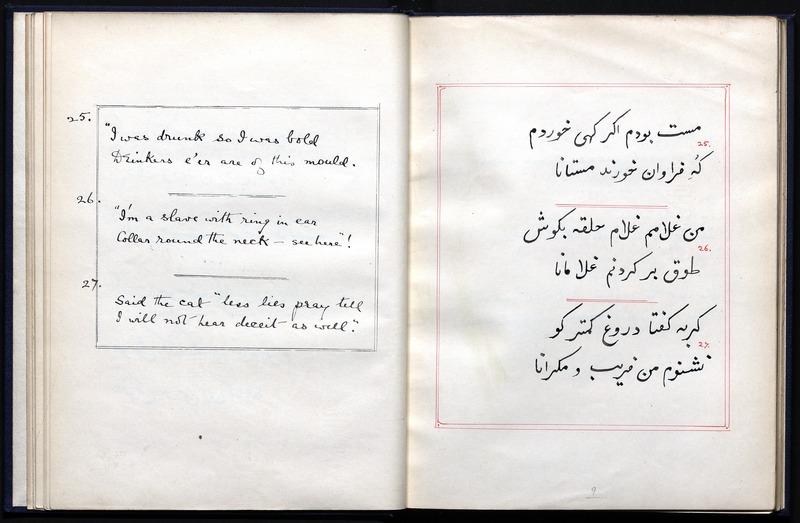 25.
"I was drunk so I was bold
Drinkers e'er are of this mould.
26.
"I'm a slave with ring in ear
Collar round the neck – see here"!
27.
Said the cat "less lies pray tell
I will not hear deceit as well."
مست بودم اکر کهی خوردم
25.
کُهِ فراوان خورند مستانا
من غلامم غلام حلقه بکوش
26.
طوق بر کردنم غلامانا
کربه کفتا دروغ کمتر کو
27.
نشنوم من فریب و مکرانا
9